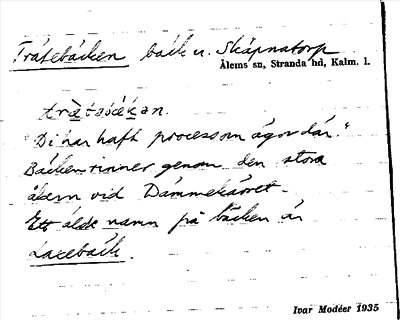 Trätebäcken bäck n. Skäpnatorp
Ålems sn, Stranda hd, Kalm. l.
trätabäkan.
"Di har haft process om ägor där."
Bäcken rinner genom den stora
åkern vid Dämmekärret.
Ett äldre namn på bäcken är
Laxebäck.
Ivar Modéer 1935